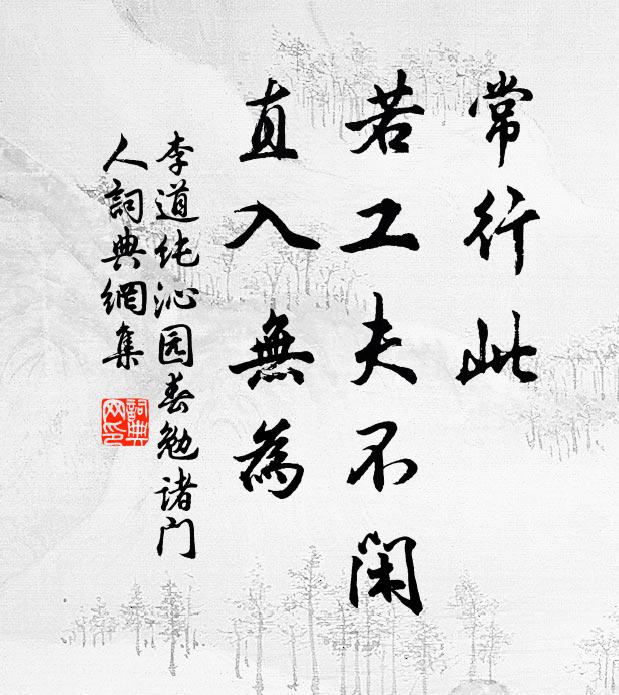 常行此
若工夫不闲
直入無為
李道纯沁园春勉诸门
人詞典網集
詞典
网印